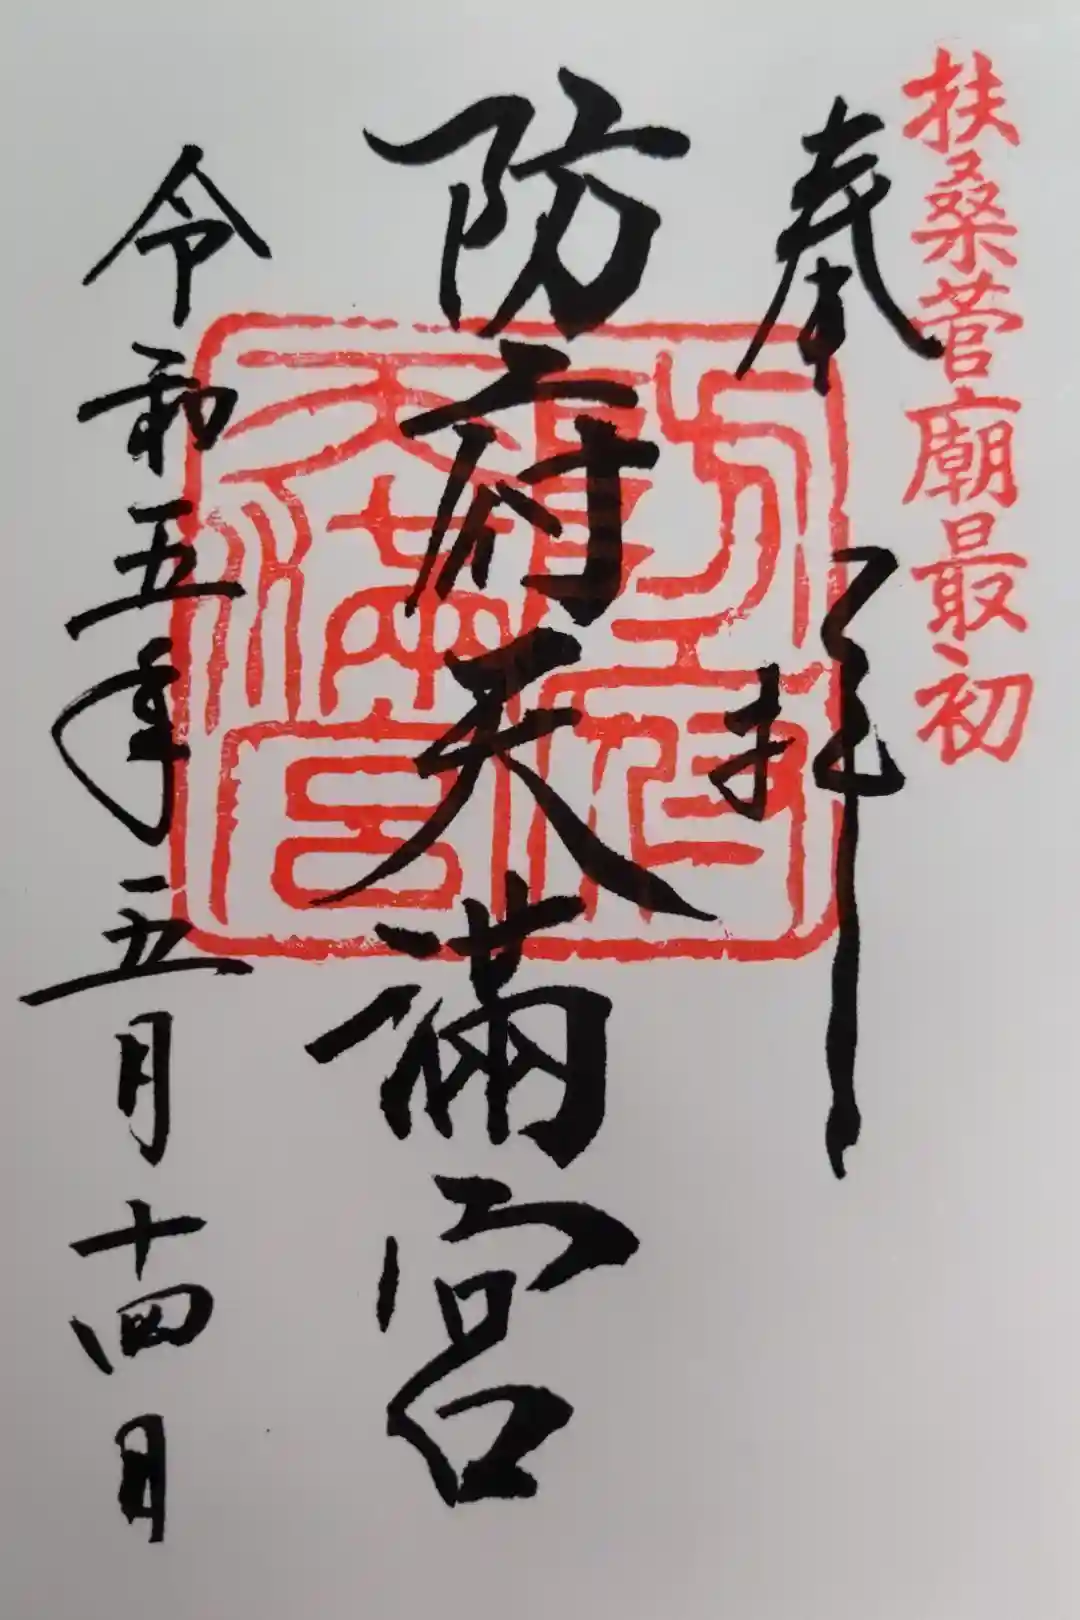 扶桑菅廟最初
奉拝
防府天満宮
防府
天満宮
令和五年五月十四日